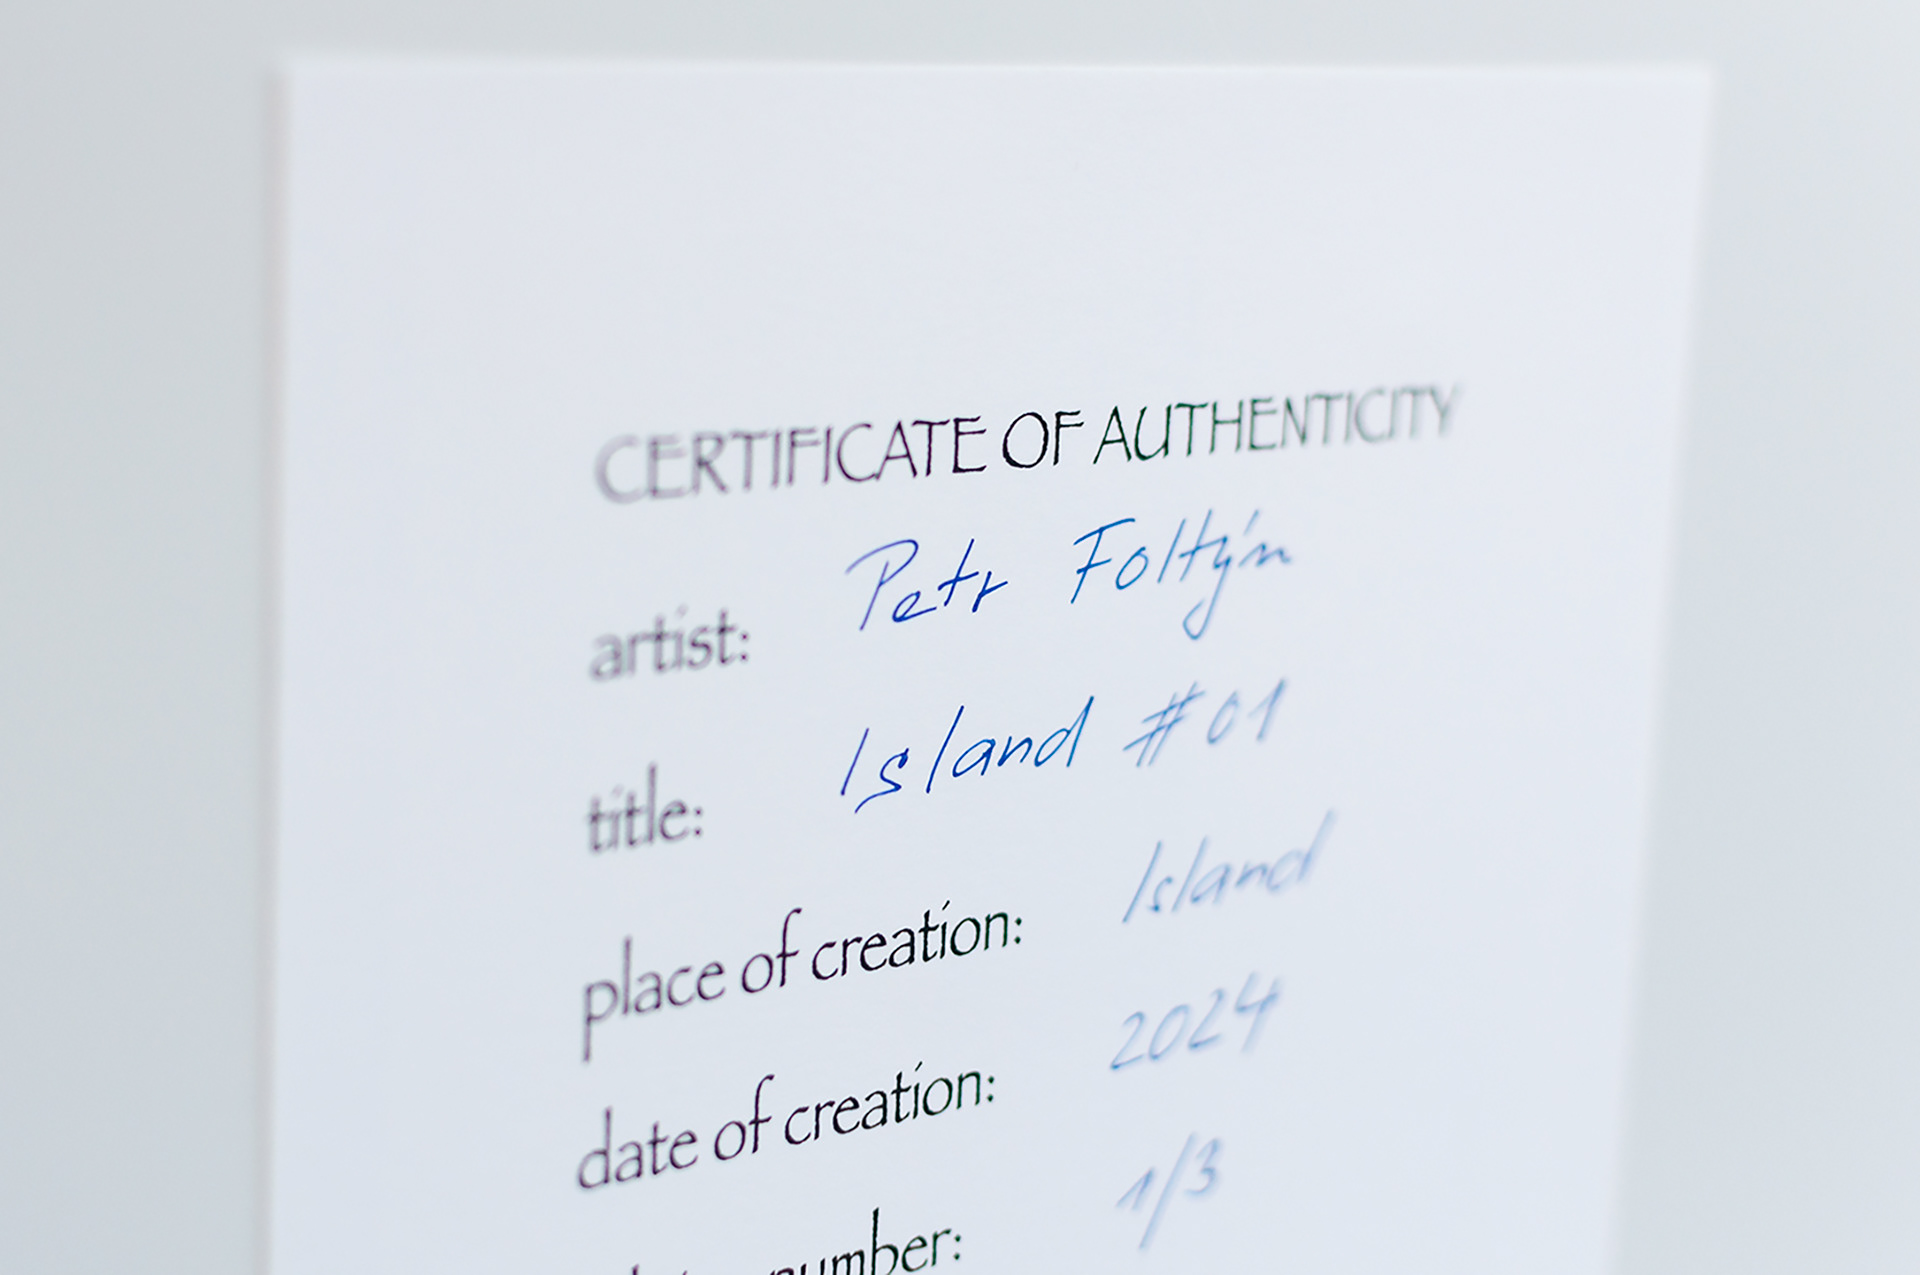 CERTIFICATE OF AUTHENTICITY
artist: Petr Foltýn
title: Island #01
place of creation: Island
date of creation: 2024
number: 1/3